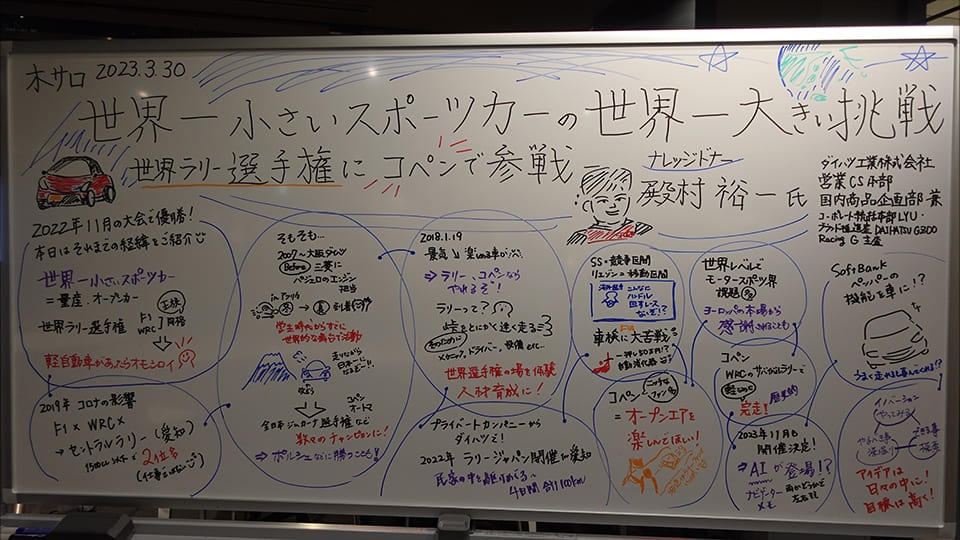 木サロ 2023.3.30
世界一小さいスポーツカーの世界一大きい挑戦
世界ラリー選手権にコペンで参戦
ナレッジドナー
殿村 裕一 氏
ダイハツ工業株式会社
営業CS本部
国内商品企画部 兼
DAIHATSU GAZOO
Racing G 主査
2022年11月の大会で優勝!
本日はそれまでの経緯をご紹介
世界一小さいスポーツカー
=量産、オープンカー
世界ラリー選手権
F1
WRC
同格
軽自動車があったらオモシロイ
2019年 コロナの影響
F1× WRC×
→セントラルラリー(愛知)
1500cc以下で2位
そもそも…
2007~大阪ダイハツ
Before 三菱に
パジェロのエンジン
担当
inアフリカ
学生時代からすでに
世界的な舞台で活動
走りながら
日本一に
なるぞー!!
コペン
オートマ
全日本ジムカーナ選手権など
数々のチャンピオンに!
⇒ポルシェなどに勝つことも!
2018.1.19
景気↓ 楽しめる車が
⇒ラリー、コペンなら
やれるぞ!
ラリーって?
峠をとにかく速く走る
そのために
メカニック、ドライバー、設備 etc…
世界選手権の場を体験
人材育成に!
プライベートカンパニーから
ダイハツで!
2022年 ラリージャパン開催in愛知
民家の中を駆けめぐる、
4日間 合計100km
SS=競争区間
リエゾン=移動区間
海外選手
こんなに
ハンドル
回すレース
ないぞ!?
車検に大苦戦
一押し50万円!?
自動消化器
コペン
ニッチな
ファン多
=オープンエアを
楽しんでほしい!
世界レベルで
モータースポーツ界
課題多
ヨーロッパの市場から
感謝されることも
コペン
WRCのサバイバルラリーで
軽なのに
歴史的
完走!
2023年11月も
開催決定!
⇒AIが登場!?
ナビゲーター
メモ
SoftBank
ペッパーの
技能を車に!?
うまく走れると喜んでくれる!?
イノベーション
やってみる
アイデアは
日々の中に!
目標は高く!